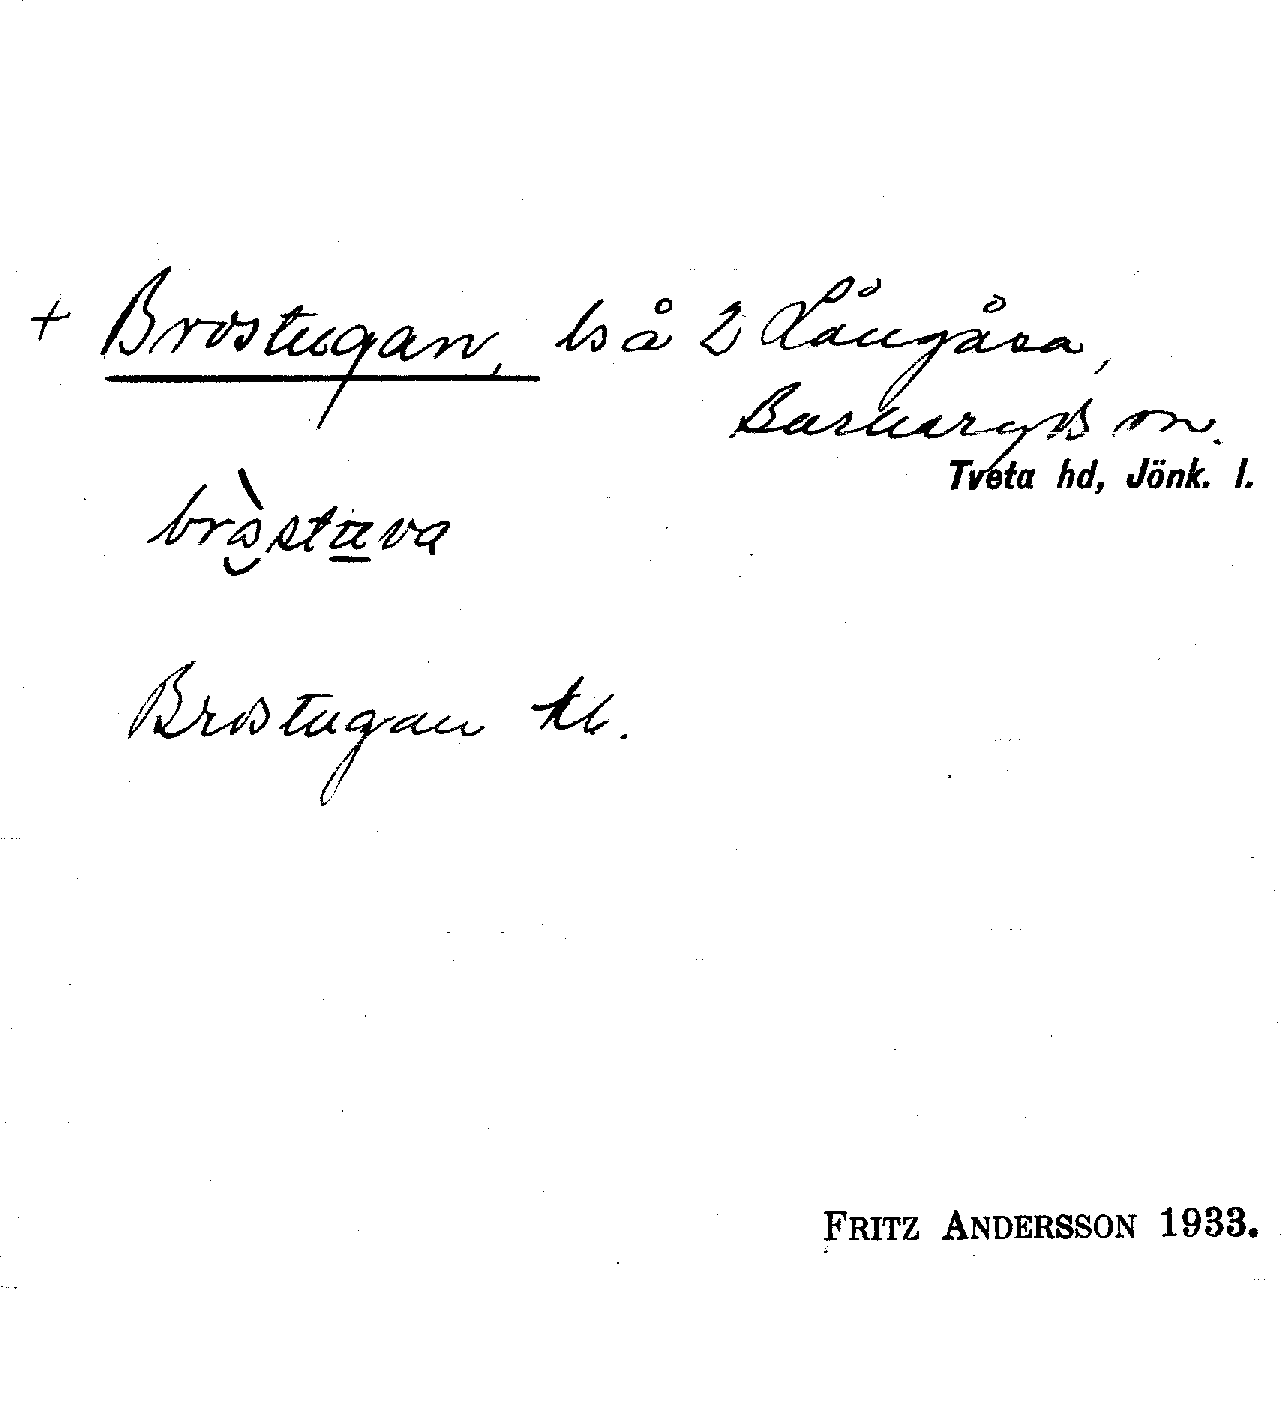 + Brostugan, ls å 2 Långåsa,
Barkeryds sn.
Tveta hd, Jönk. l.
bròstuva
Brostugan kb.
FRITZ ANDERSSON 1933.